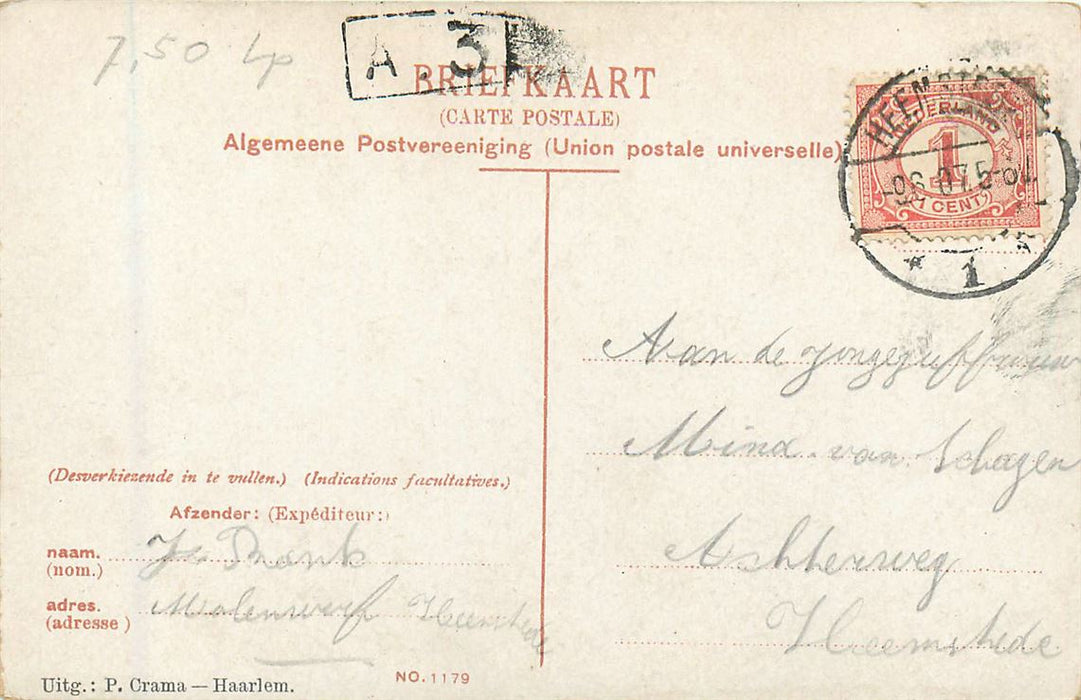 7,50 Lp
A. 3
BRIEFKAART
(CARTE POSTALE)
Algemeene Postvereeniging (Union postale universelle)
NEDERLAND
1
1 CENT
HEEMSTEDE
1
Aan de jongejuffrouw
Mina van Schagen
Achterweg
Heemstede
(Desverkiezende in te vullen.) (Indications facultatives.)
Afzender: (Expéditeur:)
naam.
(nom.)
adres. Molenwerf Heemstede
(adresse)
Uitg.: P. Crama — Haarlem.
NO. 1179